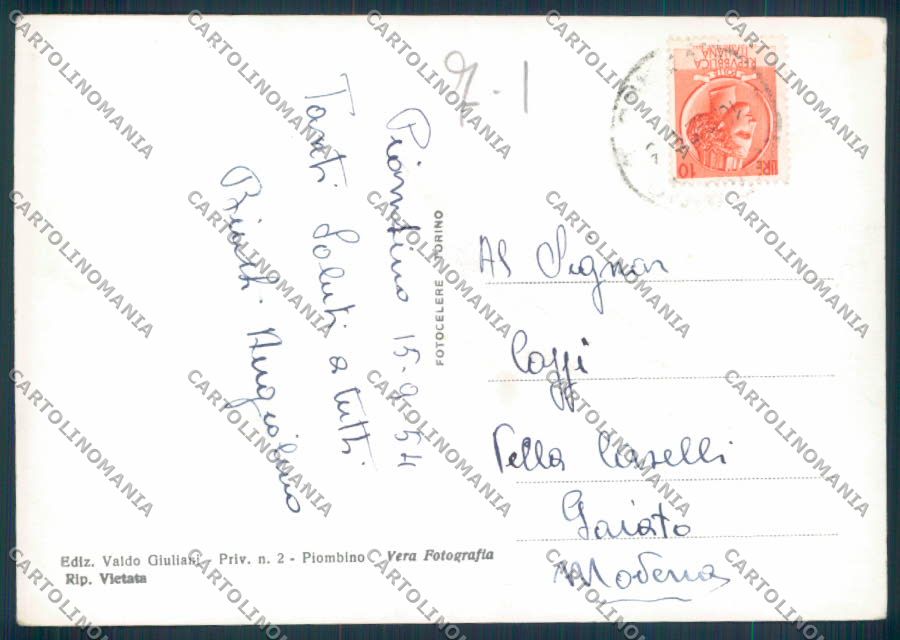 Piombino 15-9-54
Tanti Saluti a tutti
Biatti Angiolino
7-1
REPVBBLICA
ITALIANA
LIRE 10
FOTOCELERE TORINO
Al Signor
Cassi
Della Caselli
Gaiato
Modena
Ediz. Valdo Giuliani - Priv. n. 2 - Piombino Vera Fotografia
Rip. Vietata
CARTOLINOMANIA